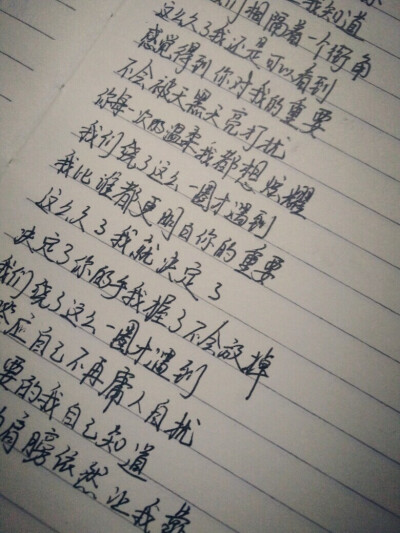 我知道
我们相隔着一个街角
这么久了我还是可以看到
感觉得到你对我的重要
不会被天黑天亮打扰
你每一次的温柔我都想炫耀
我们绕了这么一圈才遇到
我比谁都更明白你的重要
这么久了我就决定了
决定了你的手我握了不会放掉
我们绕了这么一圈才遇到
答应自己不再庸人自扰
要的我自己知道
肩膀依然让我靠